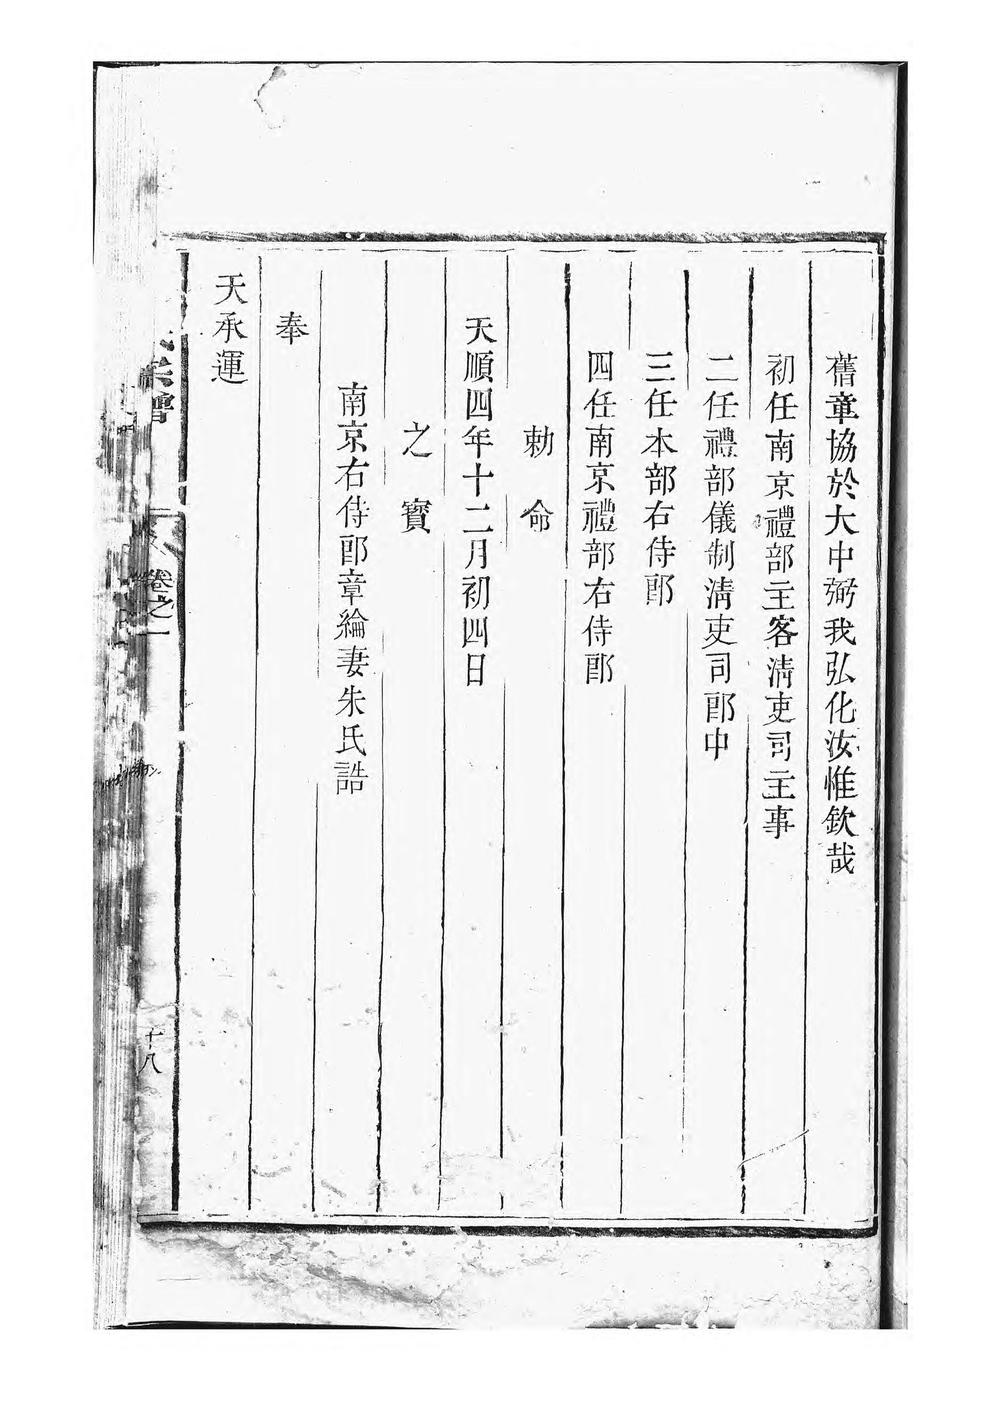 舊章協於大中弼我弘化汝惟欽哉
初任南京禮部主客清吏司主事
二任禮部儀制清吏司郎中
三任本部右侍郎
四任南京禮部右侍郎
勅命
天順四年十二月初四日
之寶
南京右侍郎章綸妻朱氏誥
奉
天承運
卷之一
十八